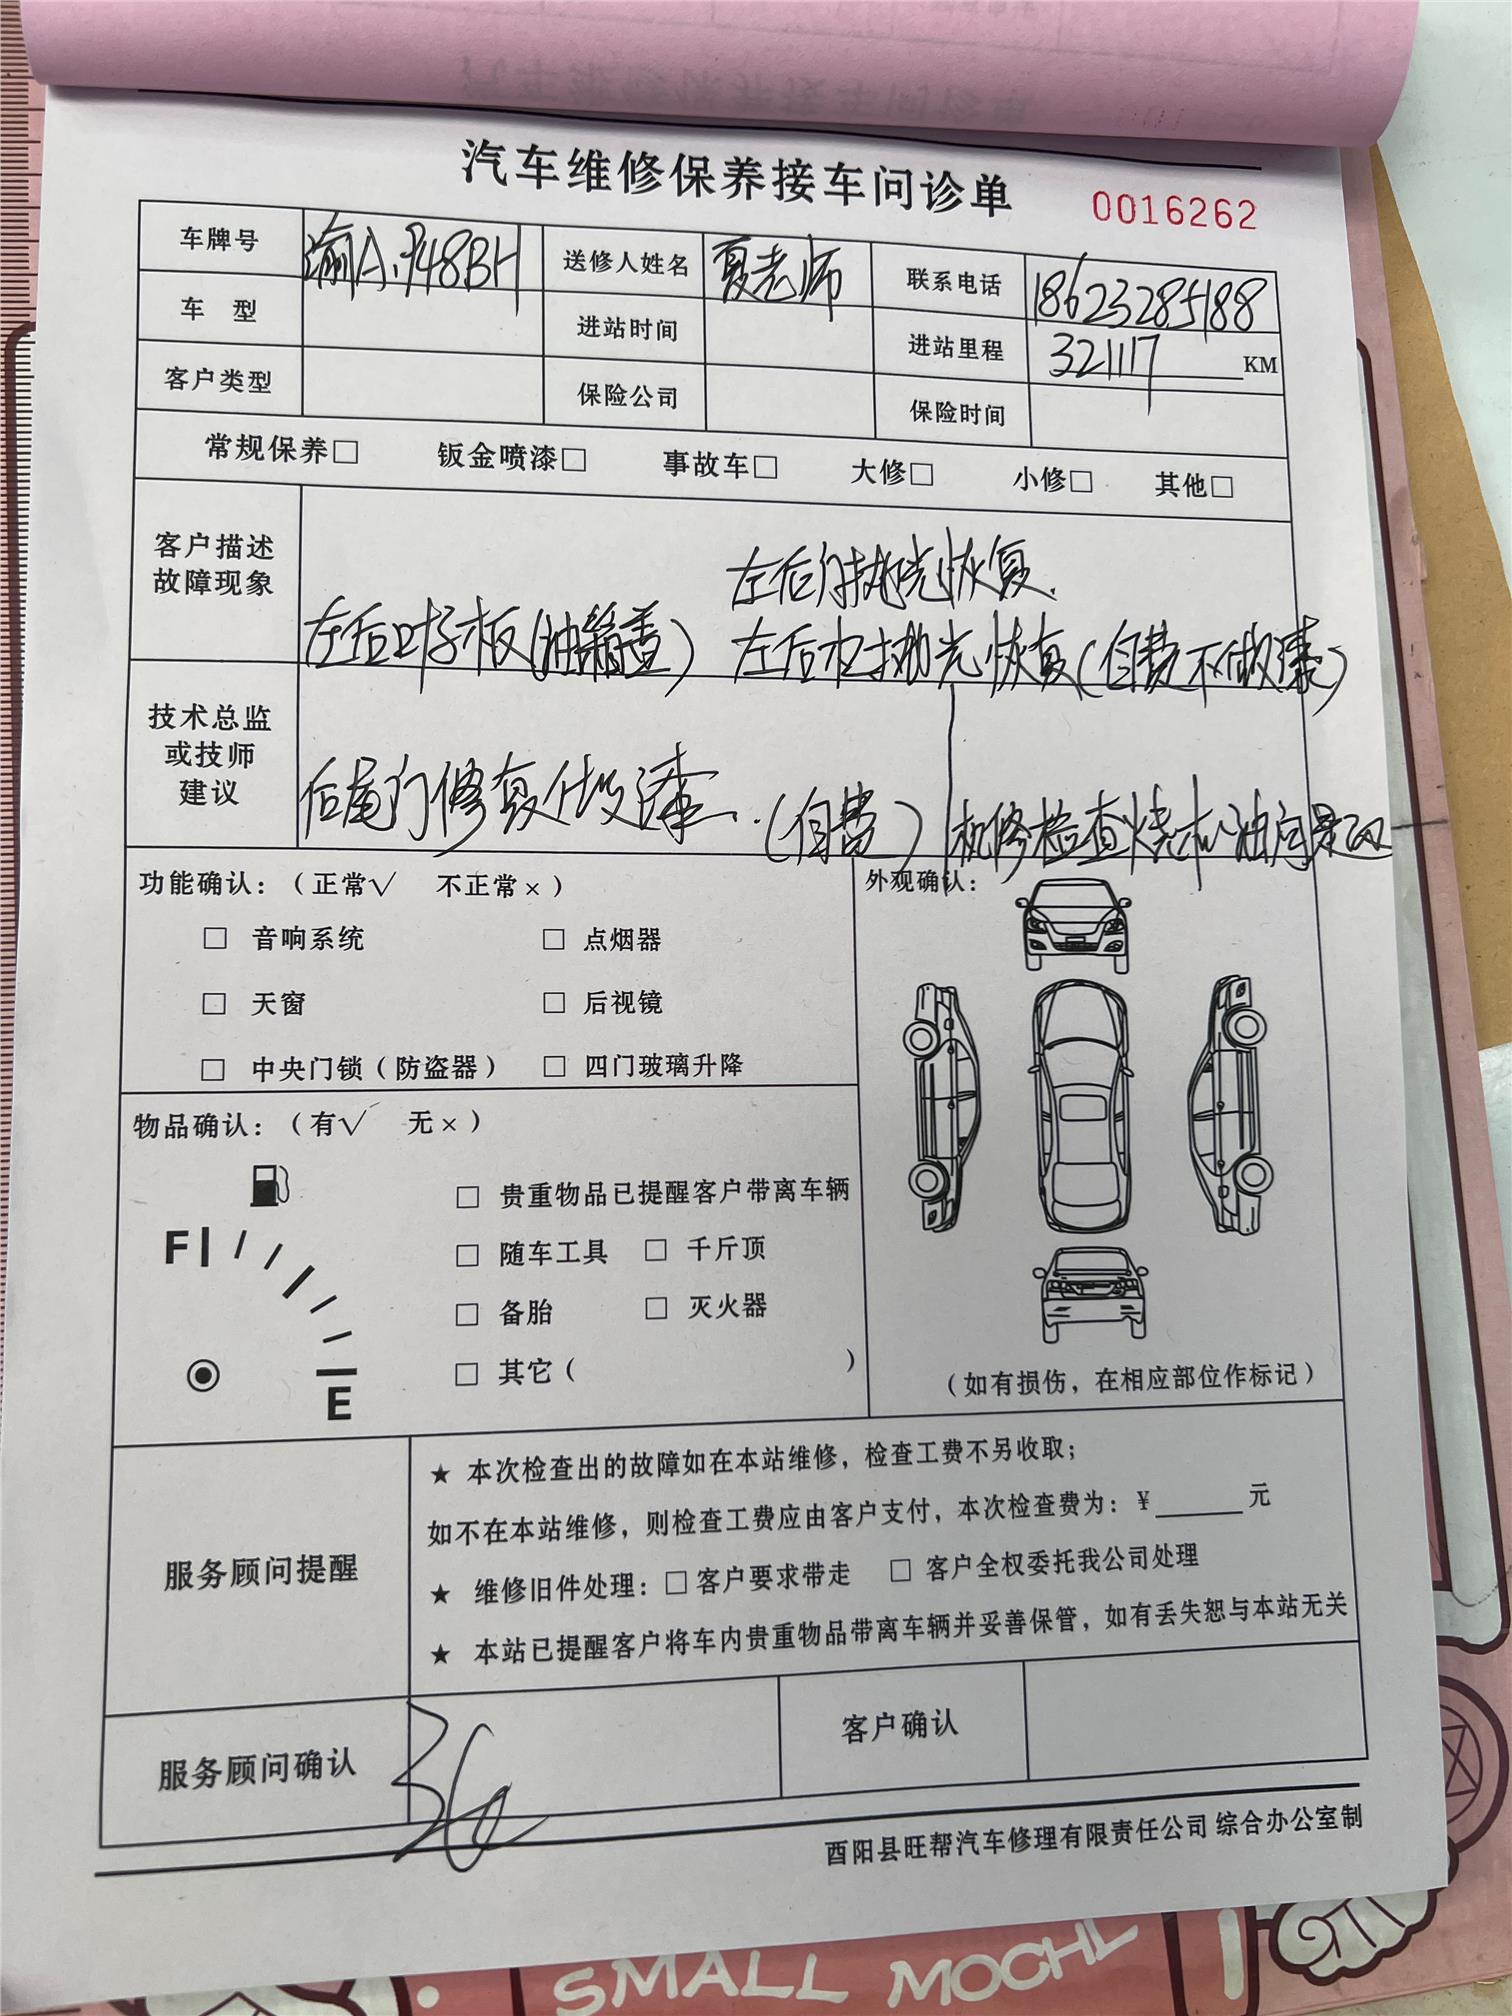 汽车维修保养接车问诊单
0016262
车牌号 渝A·948BH 送修人姓名 夏老师 联系电话 18623285188
车 型 进站时间 进站里程 321117 KM
客户类型 保险公司 保险时间
常规保养□ 钣金喷漆□ 事故车□ 大修□ 小修□ 其他□
客户描述
故障现象
左后门抛光恢复.
左后叶子板(油箱盖) 左后杠抛光恢复(自费不做漆)
技术总监
或技师
建议
后尾门修复做漆.(自费) 机修检查烧机油问题
功能确认：（正常√ 不正常×） 外观确认：
□ 音响系统 □ 点烟器
□ 天窗 □ 后视镜
□ 中央门锁（防盗器） □ 四门玻璃升降
物品确认：（有√ 无×）
□ 贵重物品已提醒客户带离车辆
F
□ 随车工具 □ 千斤顶
□ 备胎 □ 灭火器
□ 其它（ ）
E
（如有损伤，在相应部位作标记）
服务顾问提醒
★ 本次检查出的故障如在本站维修，检查工费不另收取；
如不在本站维修，则检查工费应由客户支付，本次检查费为：¥______元
★ 维修旧件处理：□客户要求带走 □ 客户全权委托我公司处理
★ 本站已提醒客户将车内贵重物品带离车辆并妥善保管，如有丢失恕与本站无关
服务顾问确认 客户确认
酉阳县旺帮汽车修理有限责任公司 综合办公室制
SMALL MOCHI